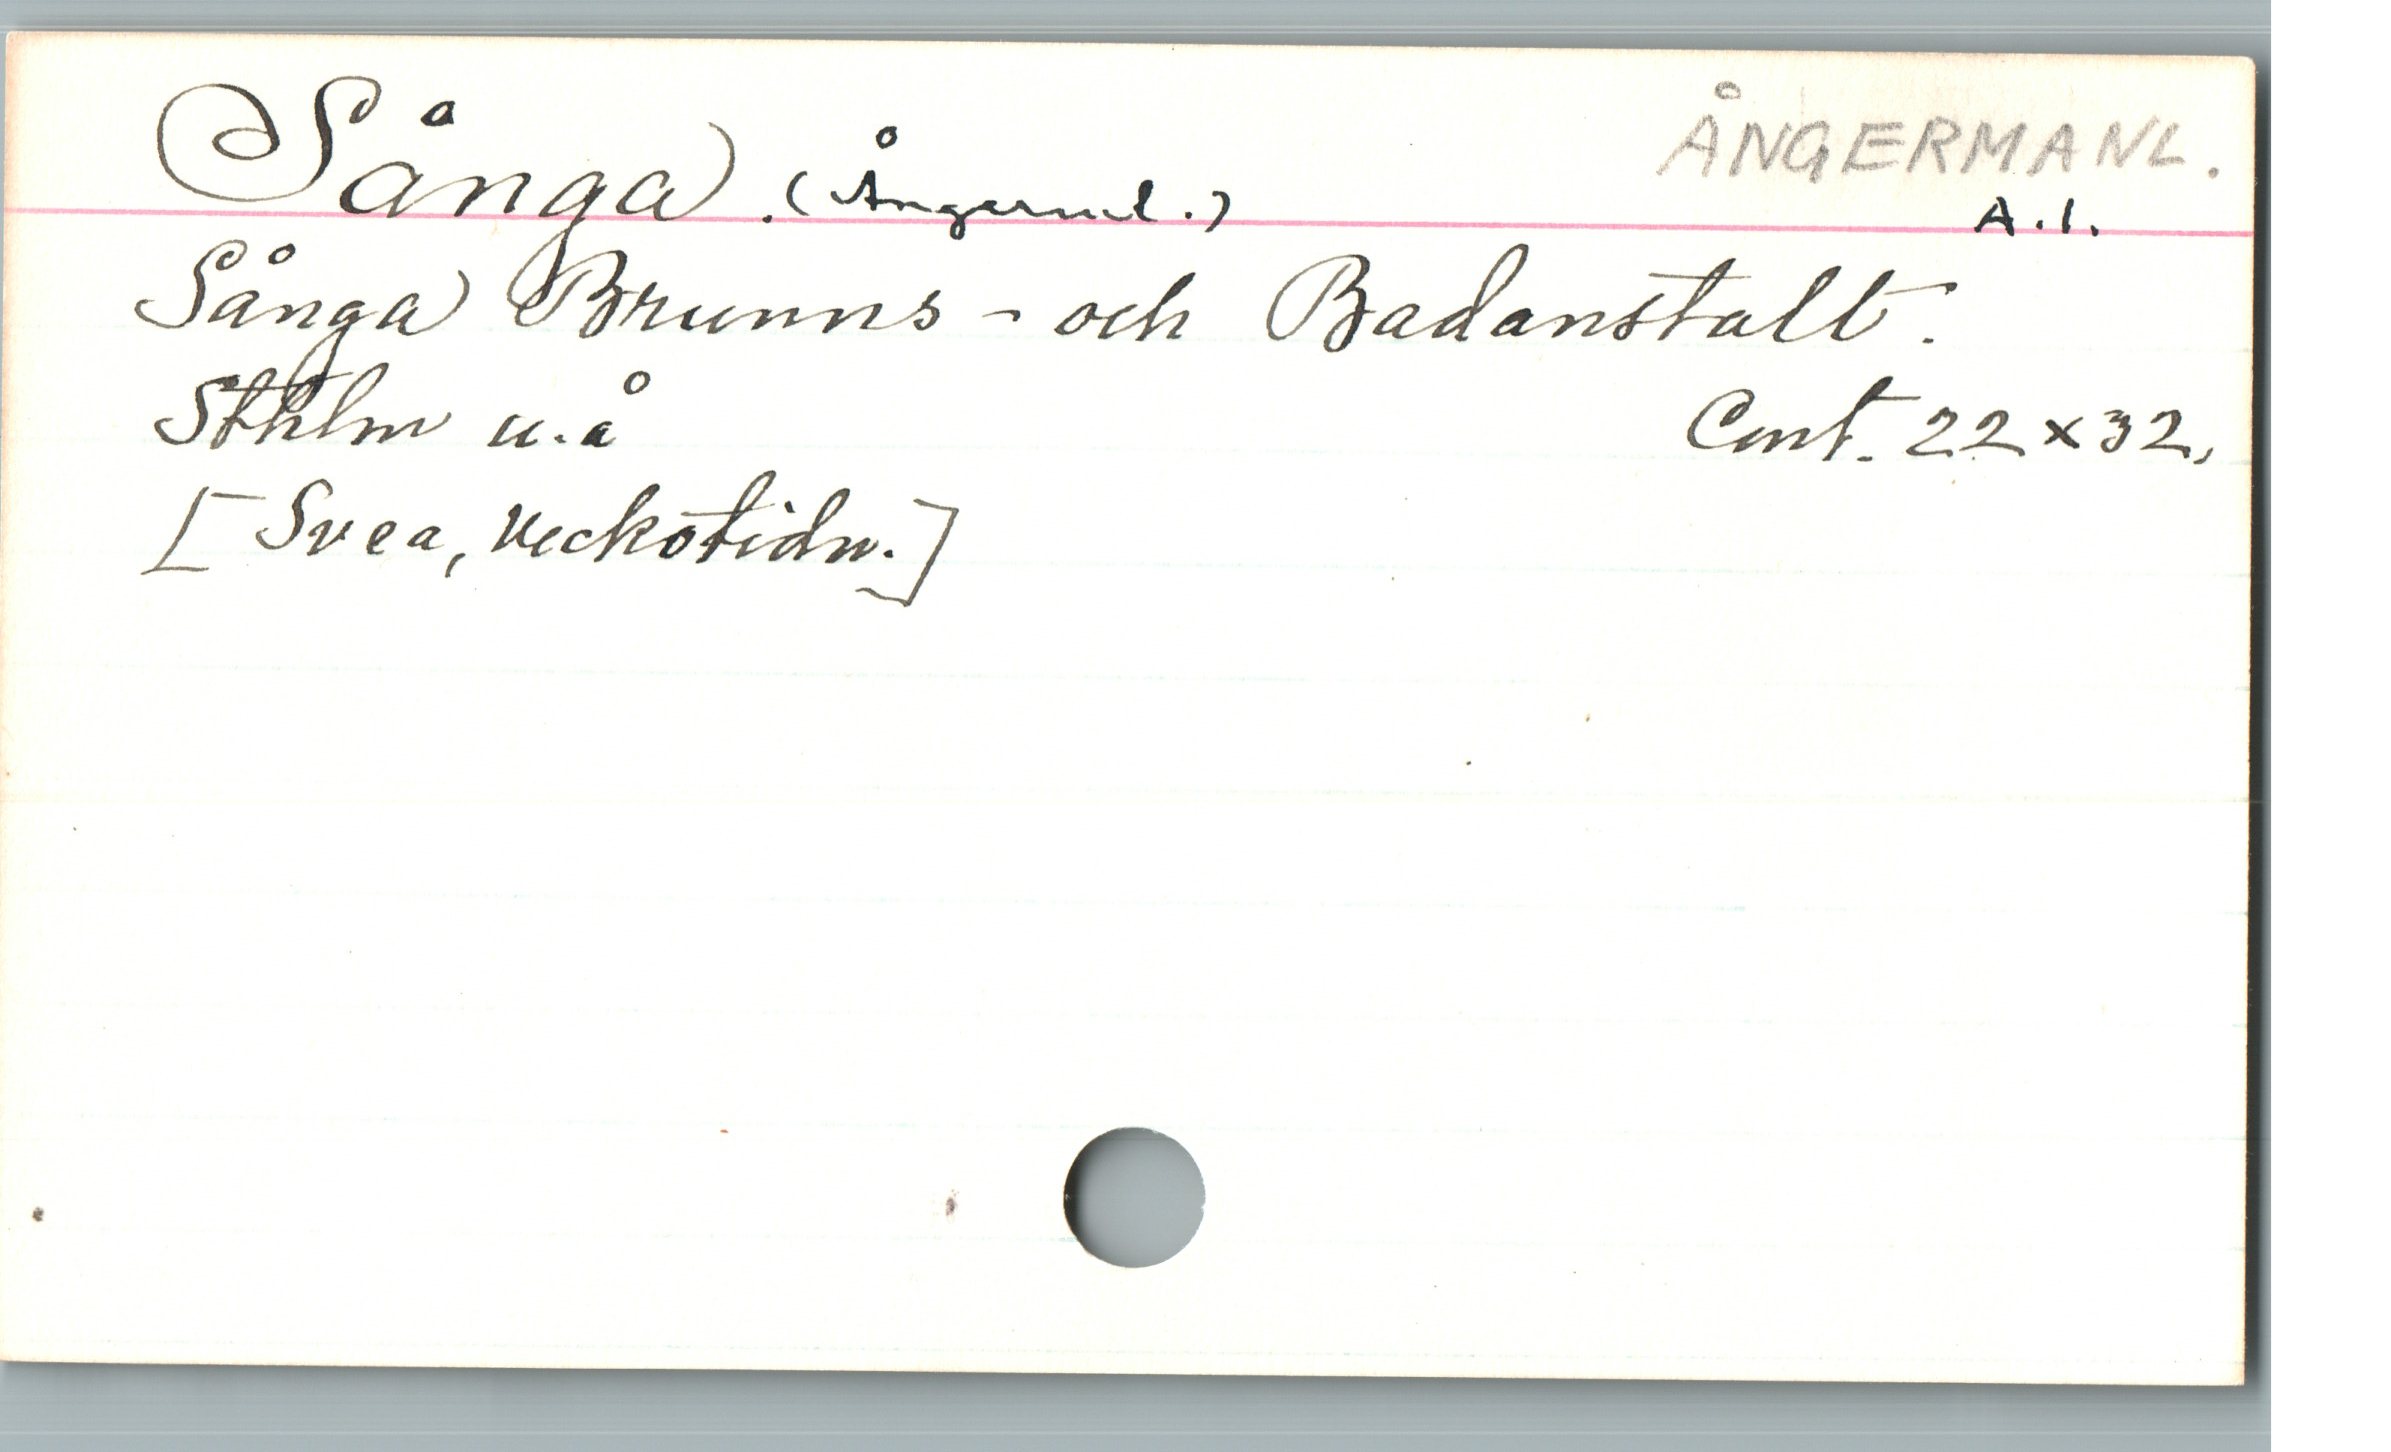 ÅNGERMANL.
Sånga. (Ångerml.) A.1.
Sånga Brunns- och Badanstalt.
Sthlm u.å Cent. 22 x 32,
[Svea, Veckotidn.]